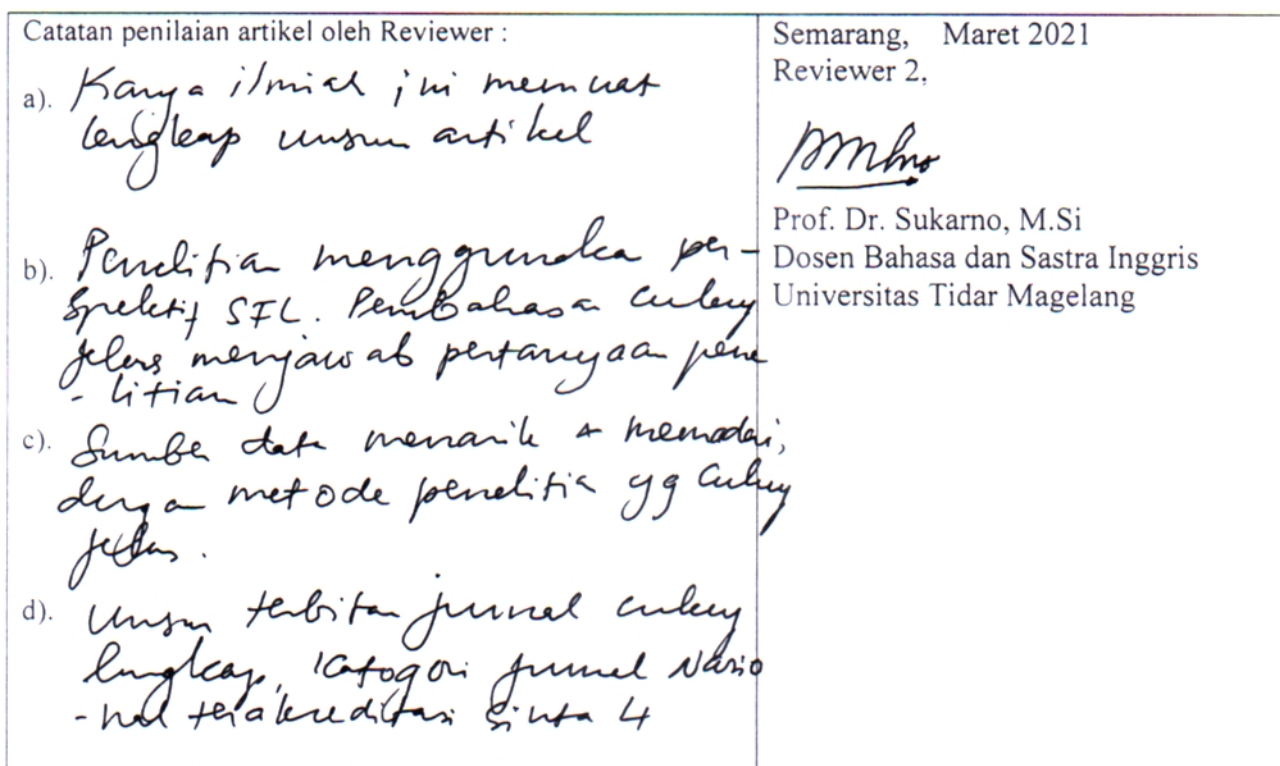 Catatan penilaian artikel oleh Reviewer :
a). Karya ilmiah ini memuat
lengkap unsur artikel
b). Penelitian menggunaka per-
spektif SFL. Pembahasan cukup
jelas menjawab pertanyaan pene
- litian
c). Sumber data menarik & memadai,
dengan metode penelitian yg cukup
jelas.
d). Unsur terbitan jurnal cukup
lengkap, Kategori jurnal Nasio
- nal terakreditasi Sinta 4
Semarang, Maret 2021
Reviewer 2,
Prof. Dr. Sukarno, M.Si
Dosen Bahasa dan Sastra Inggris
Universitas Tidar Magelang